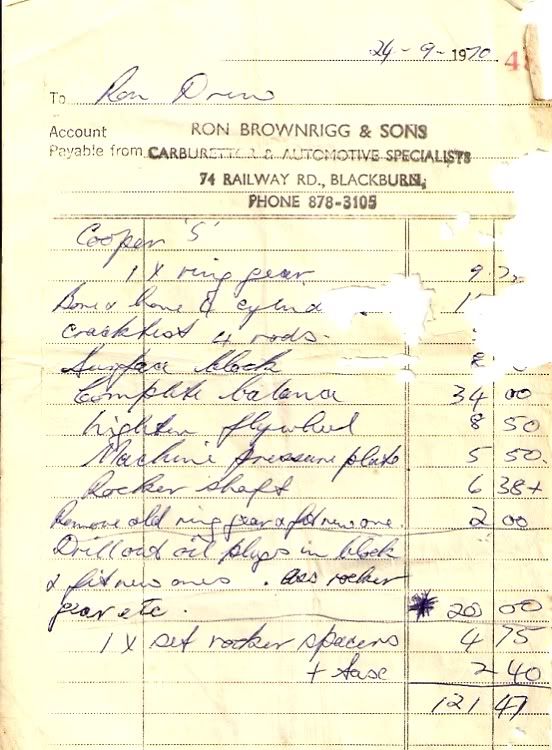 24-9-1970 4
To Ron Drew
Account
Payable from
RON BROWNRIGG & SONS
CARBURETTOR & AUTOMOTIVE SPECIALISTS
74 RAILWAY RD., BLACKBURN,
PHONE 878-3105
Cooper 'S'
1 X ring gear 9
Bore & hone 8
Cracktest 4 rods.
Surface block
Complete balance 34 00
Lighten flywheel 8 50
Machine pressure plate 5 50
Rocker shaft 6 38+
Remove old ring gear & fit new one. 2 00
Drill out oil plugs in block
& fit new ones. ass rocker
gear etc. * 20 00
1 X set rocker spacers 4 75
+ tax 2 40
121 47